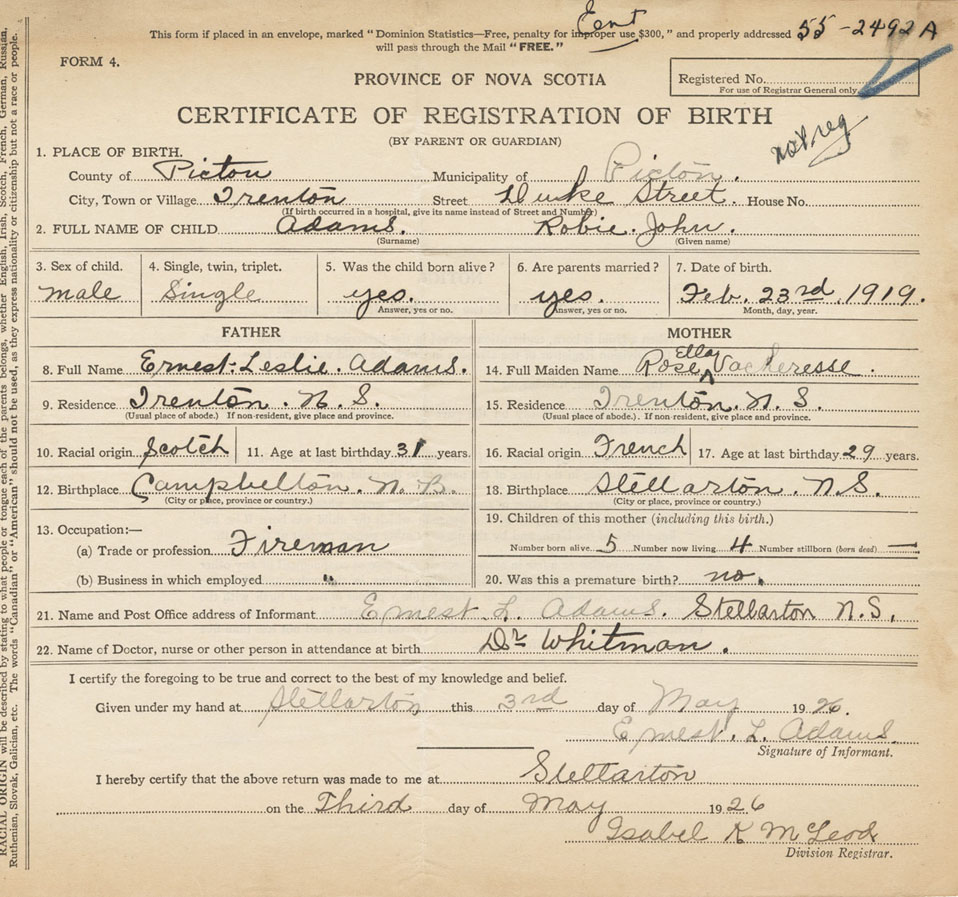 Ent
This form if placed in an envelope, marked “Dominion Statistics—Free, penalty for improper use $300,” and properly addressed 55-2492 A
will pass through the Mail “FREE.”
FORM 4.
PROVINCE OF NOVA SCOTIA
Registered No.
For use of Registrar General only.
CERTIFICATE OF REGISTRATION OF BIRTH
(BY PARENT OR GUARDIAN)
not reg
1. PLACE OF BIRTH.
County of Picton Municipality of Picton.
City, Town or Village Trenton Street Duke Street. House No.
(If birth occurred in a hospital, give its name instead of Street and Number)
2. FULL NAME OF CHILD Adams. Robie. John.
(Surname) (Given name)
3. Sex of child. 4. Single, twin, triplet. 5. Was the child born alive? 6. Are parents married? 7. Date of birth.
male Single yes. yes. Feb. 23rd, 1919.
Answer, yes or no. Answer, yes or no. Month, day, year.
FATHER MOTHER
8. Full Name Ernest. Leslie. Adams. 14. Full Maiden Name Rose Ella Vacheresse.
9. Residence Trenton. N. S. 15. Residence Trenton. N. S.
(Usual place of abode.) If non-resident, give place and province. (Usual place of abode.) If non-resident, give place and province.
10. Racial origin Scotch 11. Age at last birthday 31 years. 16. Racial origin French 17. Age at last birthday 29 years.
12. Birthplace Campbellton. N. B. 18. Birthplace Stellarton. N.S.
(City or place, province or country.) (City or place, province or country.)
13. Occupation:— 19. Children of this mother (including this birth.)
(a) Trade or profession Fireman Number born alive 5 Number now living 4 Number stillborn (born dead) —
(b) Business in which employed " 20. Was this a premature birth? no.
21. Name and Post Office address of Informant Ernest. L. Adams. Stellarton N.S.
22. Name of Doctor, nurse or other person in attendance at birth Dr Whitman.
I certify the foregoing to be true and correct to the best of my knowledge and belief.
Given under my hand at Stellarton this 3rd day of May 1926.
Ernest. L. Adams.
Signature of Informant.
I hereby certify that the above return was made to me at Stellarton
on the Third day of May 1926
Isabel K McLeod
Division Registrar.
RACIAL ORIGIN will be described by stating to what people or tongue each of the parents belongs, whether English, Irish, Scotch, French, German, Russian,
Ruthenian, Slovak, Galician, etc. The words “Canadian” or “American” should not be used, as they express nationality or citizenship but not a race or people.